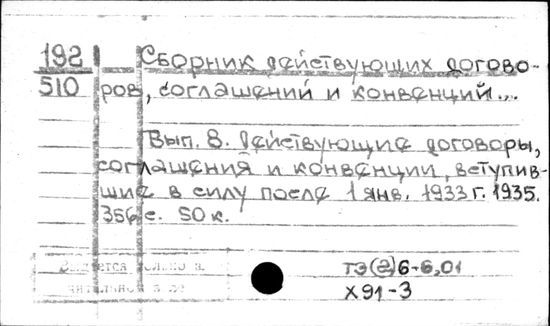 192
510
Сборник действующих догово-
ров, соглашений и конвенций...
Вып. 8. Действующие договоры,
соглашения и конвенции, вступив-
шие в силу после 1 янв. 1933 г. 1935.
356 с. 50 к.
ТЭ(2)6-6,01
Х91-3